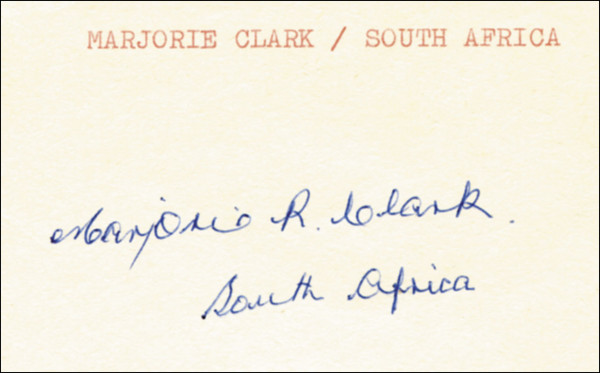 MARJORIE CLARK / SOUTH AFRICA
Marjorie R. Clark.
South Africa